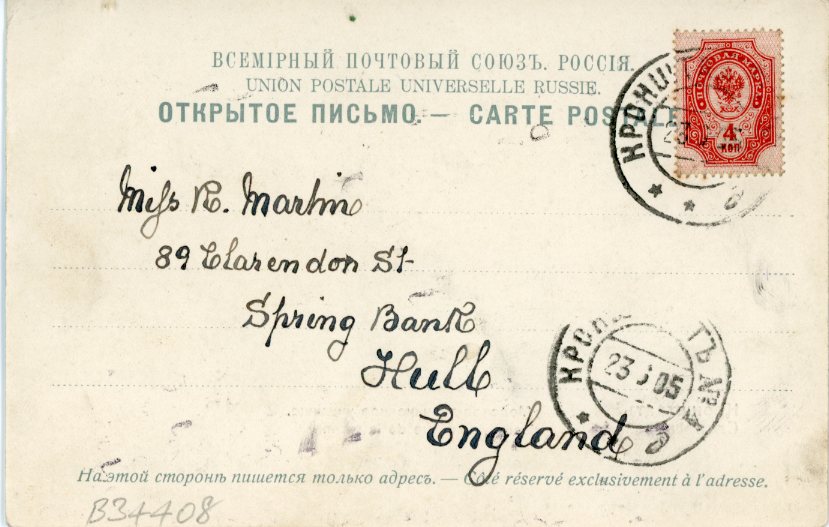 ВСЕМІРНЫЙ ПОЧТОВЫЙ СОЮЗЪ. РОССІЯ.
UNION POSTALE UNIVERSELLE RUSSIE.
ОТКРЫТОЕ ПИСЬМО. — CARTE POSTALE
ПОЧТОВАЯ МАРКА
4
КОП
КРОНШ
23
Miss R. Martin
89 Clarendon St
Spring Bank
Hull
England
КРОН ТЪ
23 05
На этой сторонѣ пишется только адресъ. — Côté réservé exclusivement à l'adresse.
B34408